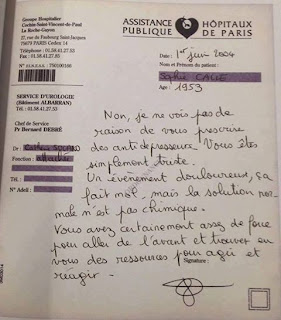 Groupe Hospitalier
Cochin-Saint-Vincent-de-Paul
La Roche-Guyon
27, rue du Faubourg Saint-Jacques
75679 PARIS Cedex 14
Téléphone : 01.58.41.27.53
Fax : 01.58.41.27.55
N° F.I.N.E.S.S. 750100166
ASSISTANCE PUBLIQUE HÔPITAUX DE PARIS
SERVICE D'UROLOGIE
(Bâtiment ALBARRAN)
Chef de Service
Pr Bernard DEBRÉ
Dr :
Fonction : attachée
Tél. :
N° Adeli :
Date : 1er juin 2004
Nom et Prénom du patient :
Sophie CALLE
Age : 1953
Non, je ne vois pas de
raison de vous prescrire
des antidépresseurs. Vous êtes
simplement triste.
Un événement douloureux, ça
fait mal, mais la solution nor-
male n'est pas chimique.
Vous avez certainement assez de force
pour aller de l'avant et trouver en
vous des ressources pour agir et
réagir -
Signature :